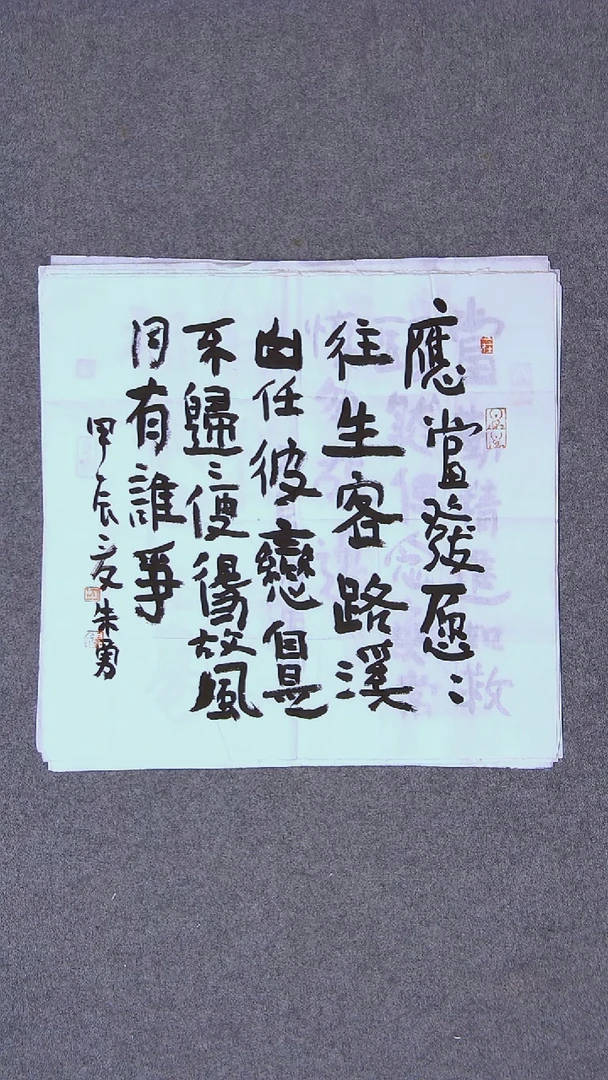 應當發愿〻
往生客路溪
山任彼戀自是
不歸〻便得故風
月有誰爭
甲辰夏朱勇